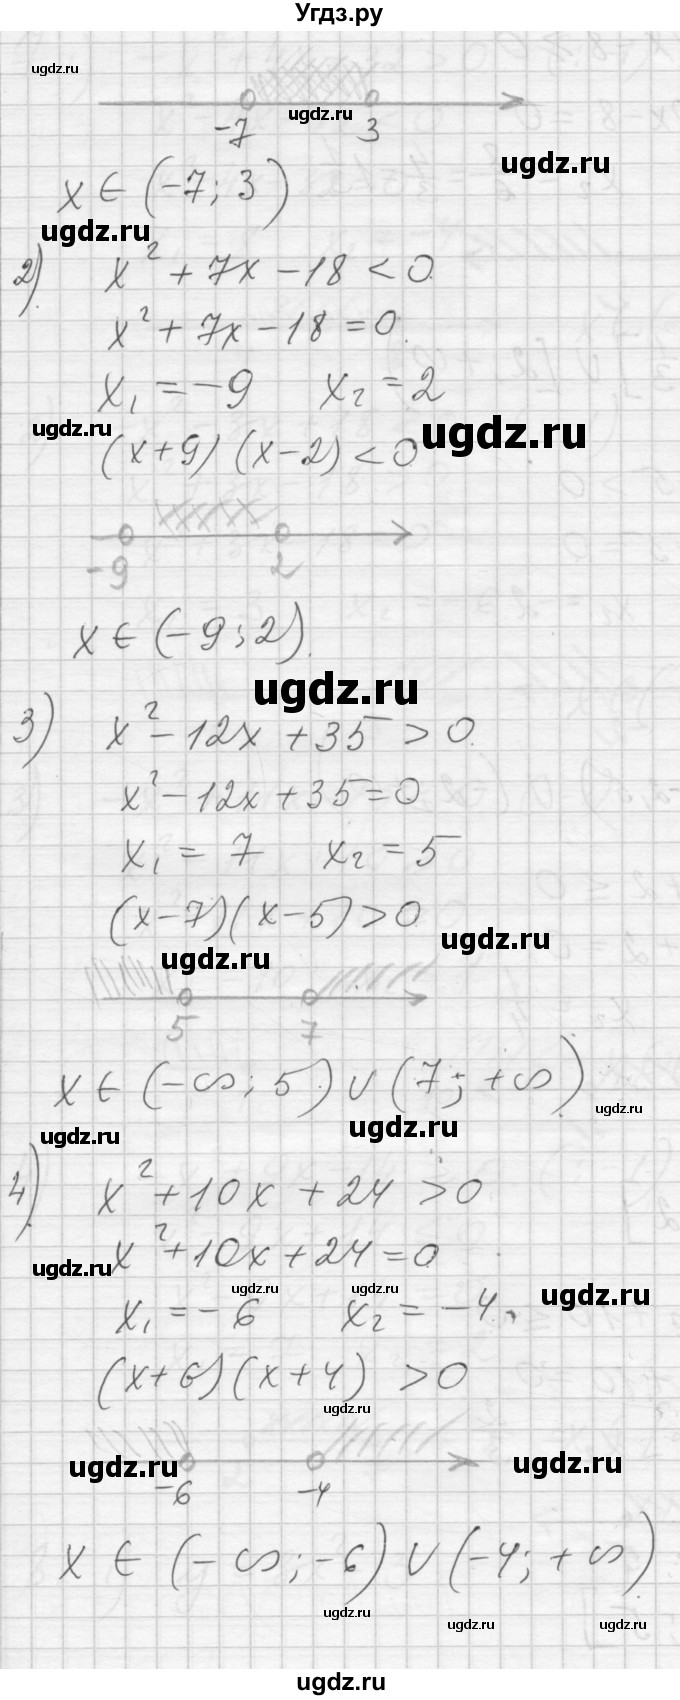 Угдз.ру
ugdz.ru
-7 ugdz.ru 3
ugdz.ru
x ∈ (-7; 3)
ugdz.ru
2) x² + 7x - 18 < 0
x² + 7x - 18 = 0
x₁ = -9 x₂ = 2
ugdz.ru ugdz.ru
(x+9)(x-2) < 0
-9 2
x ∈ (-9; 2).
ugdz.ru
3) x² - 12x + 35 > 0
x² - 12x + 35 = 0
x₁ = 7 x₂ = 5
(x-7)(x-5) > 0
ugdz.ru
ugdz.ru
5 7
x ∈ (-∞; 5) ∪ (7; +∞)
ugdz.ru
ugdz.ru ugdz.ru
4) x² + 10x + 24 > 0
x² + 10x + 24 = 0
ugdz.ru
ugdz.ru ugdz.ru ugdz.ru
x₁ = -6 x₂ = -4
(x+6)(x+4) > 0
ugdz.ru
ugdz.ru ugdz.ru
-6 -4
x ∈ (-∞; -6) ∪ (-4; +∞)
ugdz.ru
ugdz.ru ugdz.ru
ugdz.ru